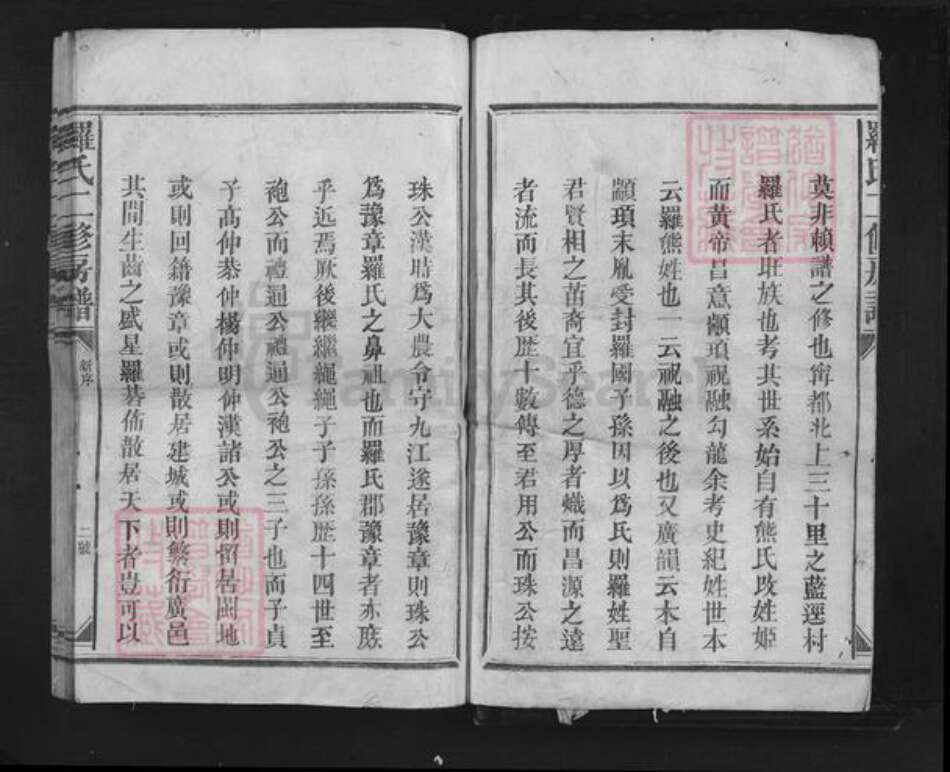 羅氏二修房譜
莫非賴譜之修也甯都北上三十里之藍逕村
羅氏者班族也考其世系始自有熊氏改姓姬
而黃帝昌意顓頊祝融勾龍余考史紀姓世本
云羅熊姓也一云祝融之後也又廣韻云本自
顓頊末胤受封羅國子孫因以爲氏則羅姓聖
君賢相之苗裔宜乎德之厚者熾而昌源之遠
者流而長其後歷十數傳至君用公而珠公按
珠公漢時爲大農令守九江遂居豫章則珠公
爲豫章羅氏之鼻祖也而羅氏郡豫章者亦庶
乎近焉厥後繼繼繩繩子子孫孫歷十四世至
袍公而禮通公禮通公袍公之三子也而子貞
子高仲恭仲楊仲明仲漢諸公或則留居閩地
或則回籍豫章或則散居建城或則繁衍廣邑
其間生齒之盛星羅碁佈散居天下者豈可以
羅氏二修房譜
新序
二號
FamilySearch